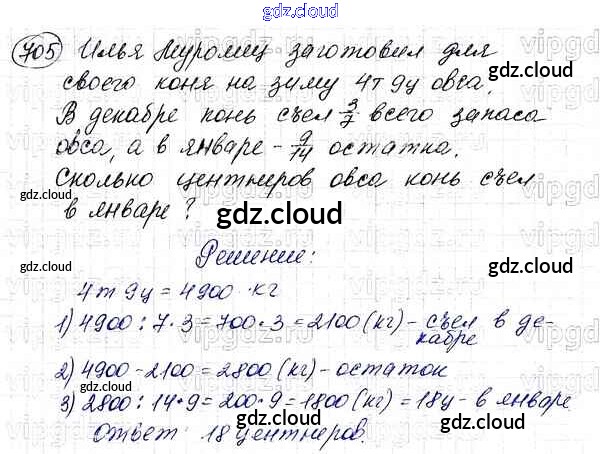 gdz.cloud
705 Илья Муромец заготовил для
своего коня на зиму 4т 9ц овса.
В декабре конь съел 3/7 всего запаса
овса, а в январе - 9/14 остатка.
Сколько центнеров овса конь съел
в январе?
Решение:
4т 9ц = 4900 кг
1) 4900 : 7 · 3 = 700 · 3 = 2100 (кг) - съел в де-
кабре
2) 4900 - 2100 = 2800 (кг) - остаток
3) 2800 : 14 · 9 = 200 · 9 = 1800 (кг) = 18ц - в январе
Ответ: 18 центнеров.